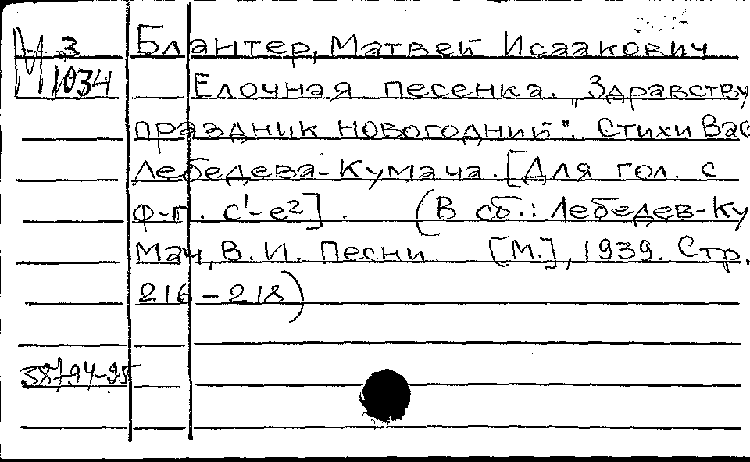 М 3
1034
Блантер, Матвей Исаакович
Елочная песенка. „Здравству
праздник новогодний". Стихи Вас
Лебедева-Кумача. [Для гол. с
ф-п. c¹-e²]. (В сб.: Лебедев-Ку
мач, В. И. Песни [М.], 1939. Стр.
216-218)